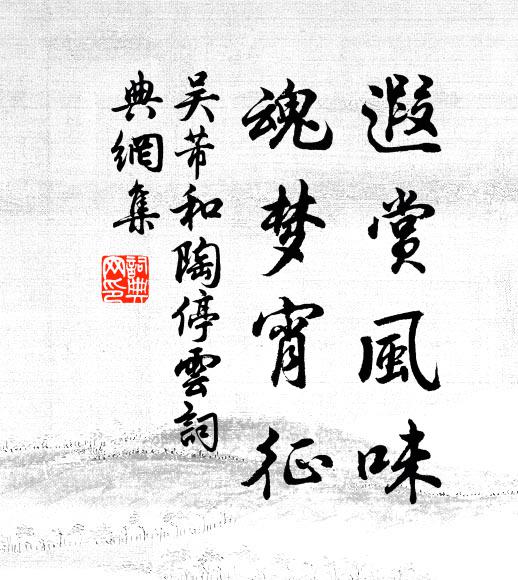 遐赏風味
魂梦宵征
吴芾和陶停雲詞
典網集
詞典網印